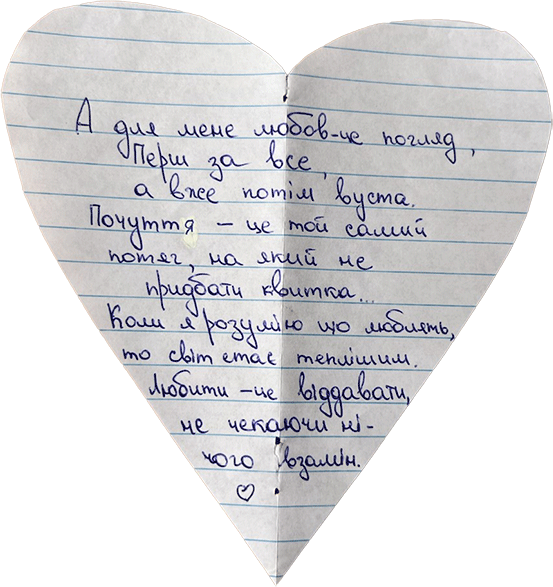 А для мене любов-це погляд,
Перш за все,
а вже потім вуста.
Почуття – це той самий
потяг, на який не
придбати квитка...
Коли я розумію що люблять,
то світ стає теплішим.
Любити –це віддавати,
не чекаючи ні-
чого взамін.
♡